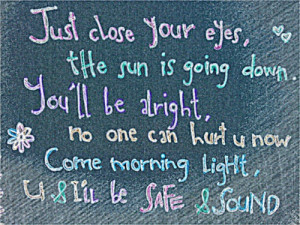 Just close your eyes,
tHe sun is going down.
You'll be alright,
no one can hurt u now
Come morning light,
U & I'll be SAFE & SOUND